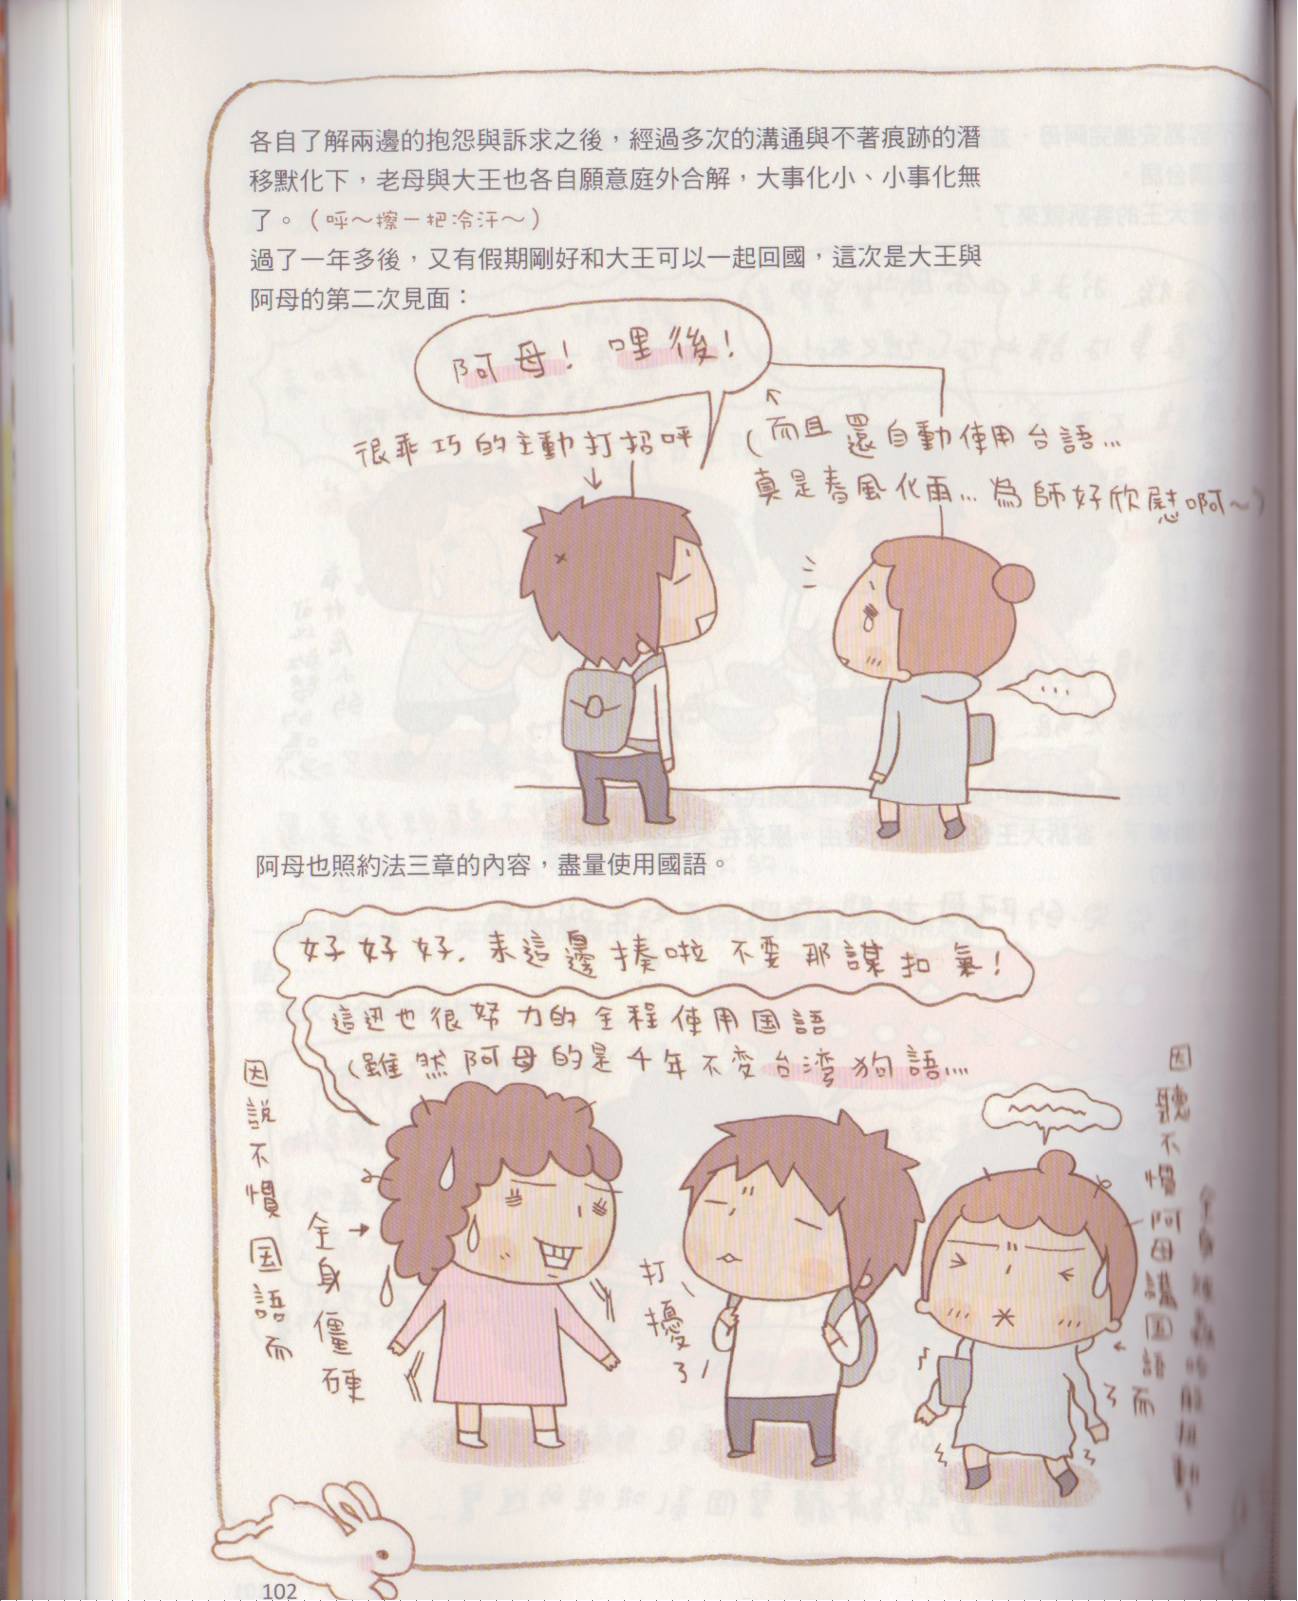 各自了解兩邊的抱怨與訴求之後，經過多次的溝通與不著痕跡的潛
移默化下，老母與大王也各自願意庭外合解，大事化小、小事化無
了。（呼～擦一把冷汗～）
過了一年多後，又有假期剛好和大王可以一起回國，這次是大王與
阿母的第二次見面：
阿母！哩後！
很乖巧的主動打招呼
（而且還自動使用台語…
真是春風化雨…為師好欣慰啊～）
…
阿母也照約法三章的內容，盡量使用國語。
好好好，來這邊揍啦不要那謀扣氣！
這迟也很努力的全程使用国語
（雖然阿母的是千年不变台湾狗語…
因說不慣国語而
全身僵硬
打擾了
因聽不慣阿母講国語而
102